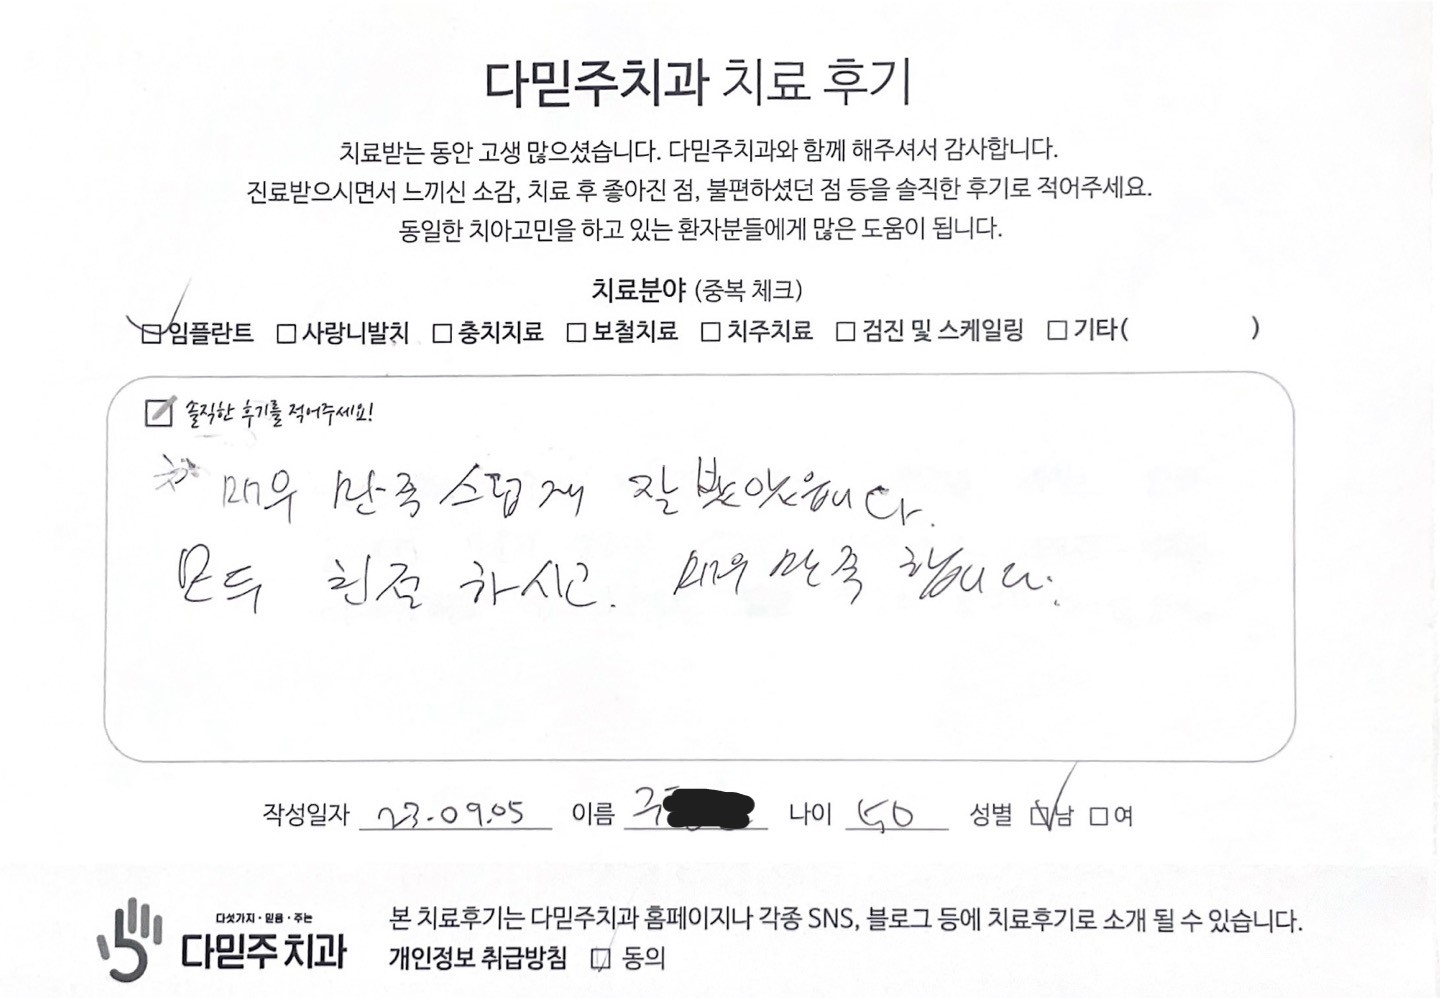 다믿주치과 치료 후기
치료받는 동안 고생 많으셨습니다. 다믿주치과와 함께 해주셔서 감사합니다.
진료받으시면서 느끼신 소감, 치료 후 좋아진 점, 불편하셨던 점 등을 솔직한 후기로 적어주세요.
동일한 치아고민을 하고 있는 환자분들에게 많은 도움이 됩니다.
치료분야 (중복 체크)
임플란트 사랑니발치 충치치료 보철치료 치주치료 검진 및 스케일링 기타( )
솔직한 후기를 적어주세요!
매우 만족스럽게 잘 받았읍니다.
모두 친절 하시고. 매우 만족 합니다.
작성일자 23.09.05 이름 나이 50 성별 남 여
다섯가지·믿음·주는
다믿주치과
본 치료후기는 다믿주치과 홈페이지나 각종 SNS, 블로그 등에 치료후기로 소개 될 수 있습니다.
개인정보 취급방침 동의